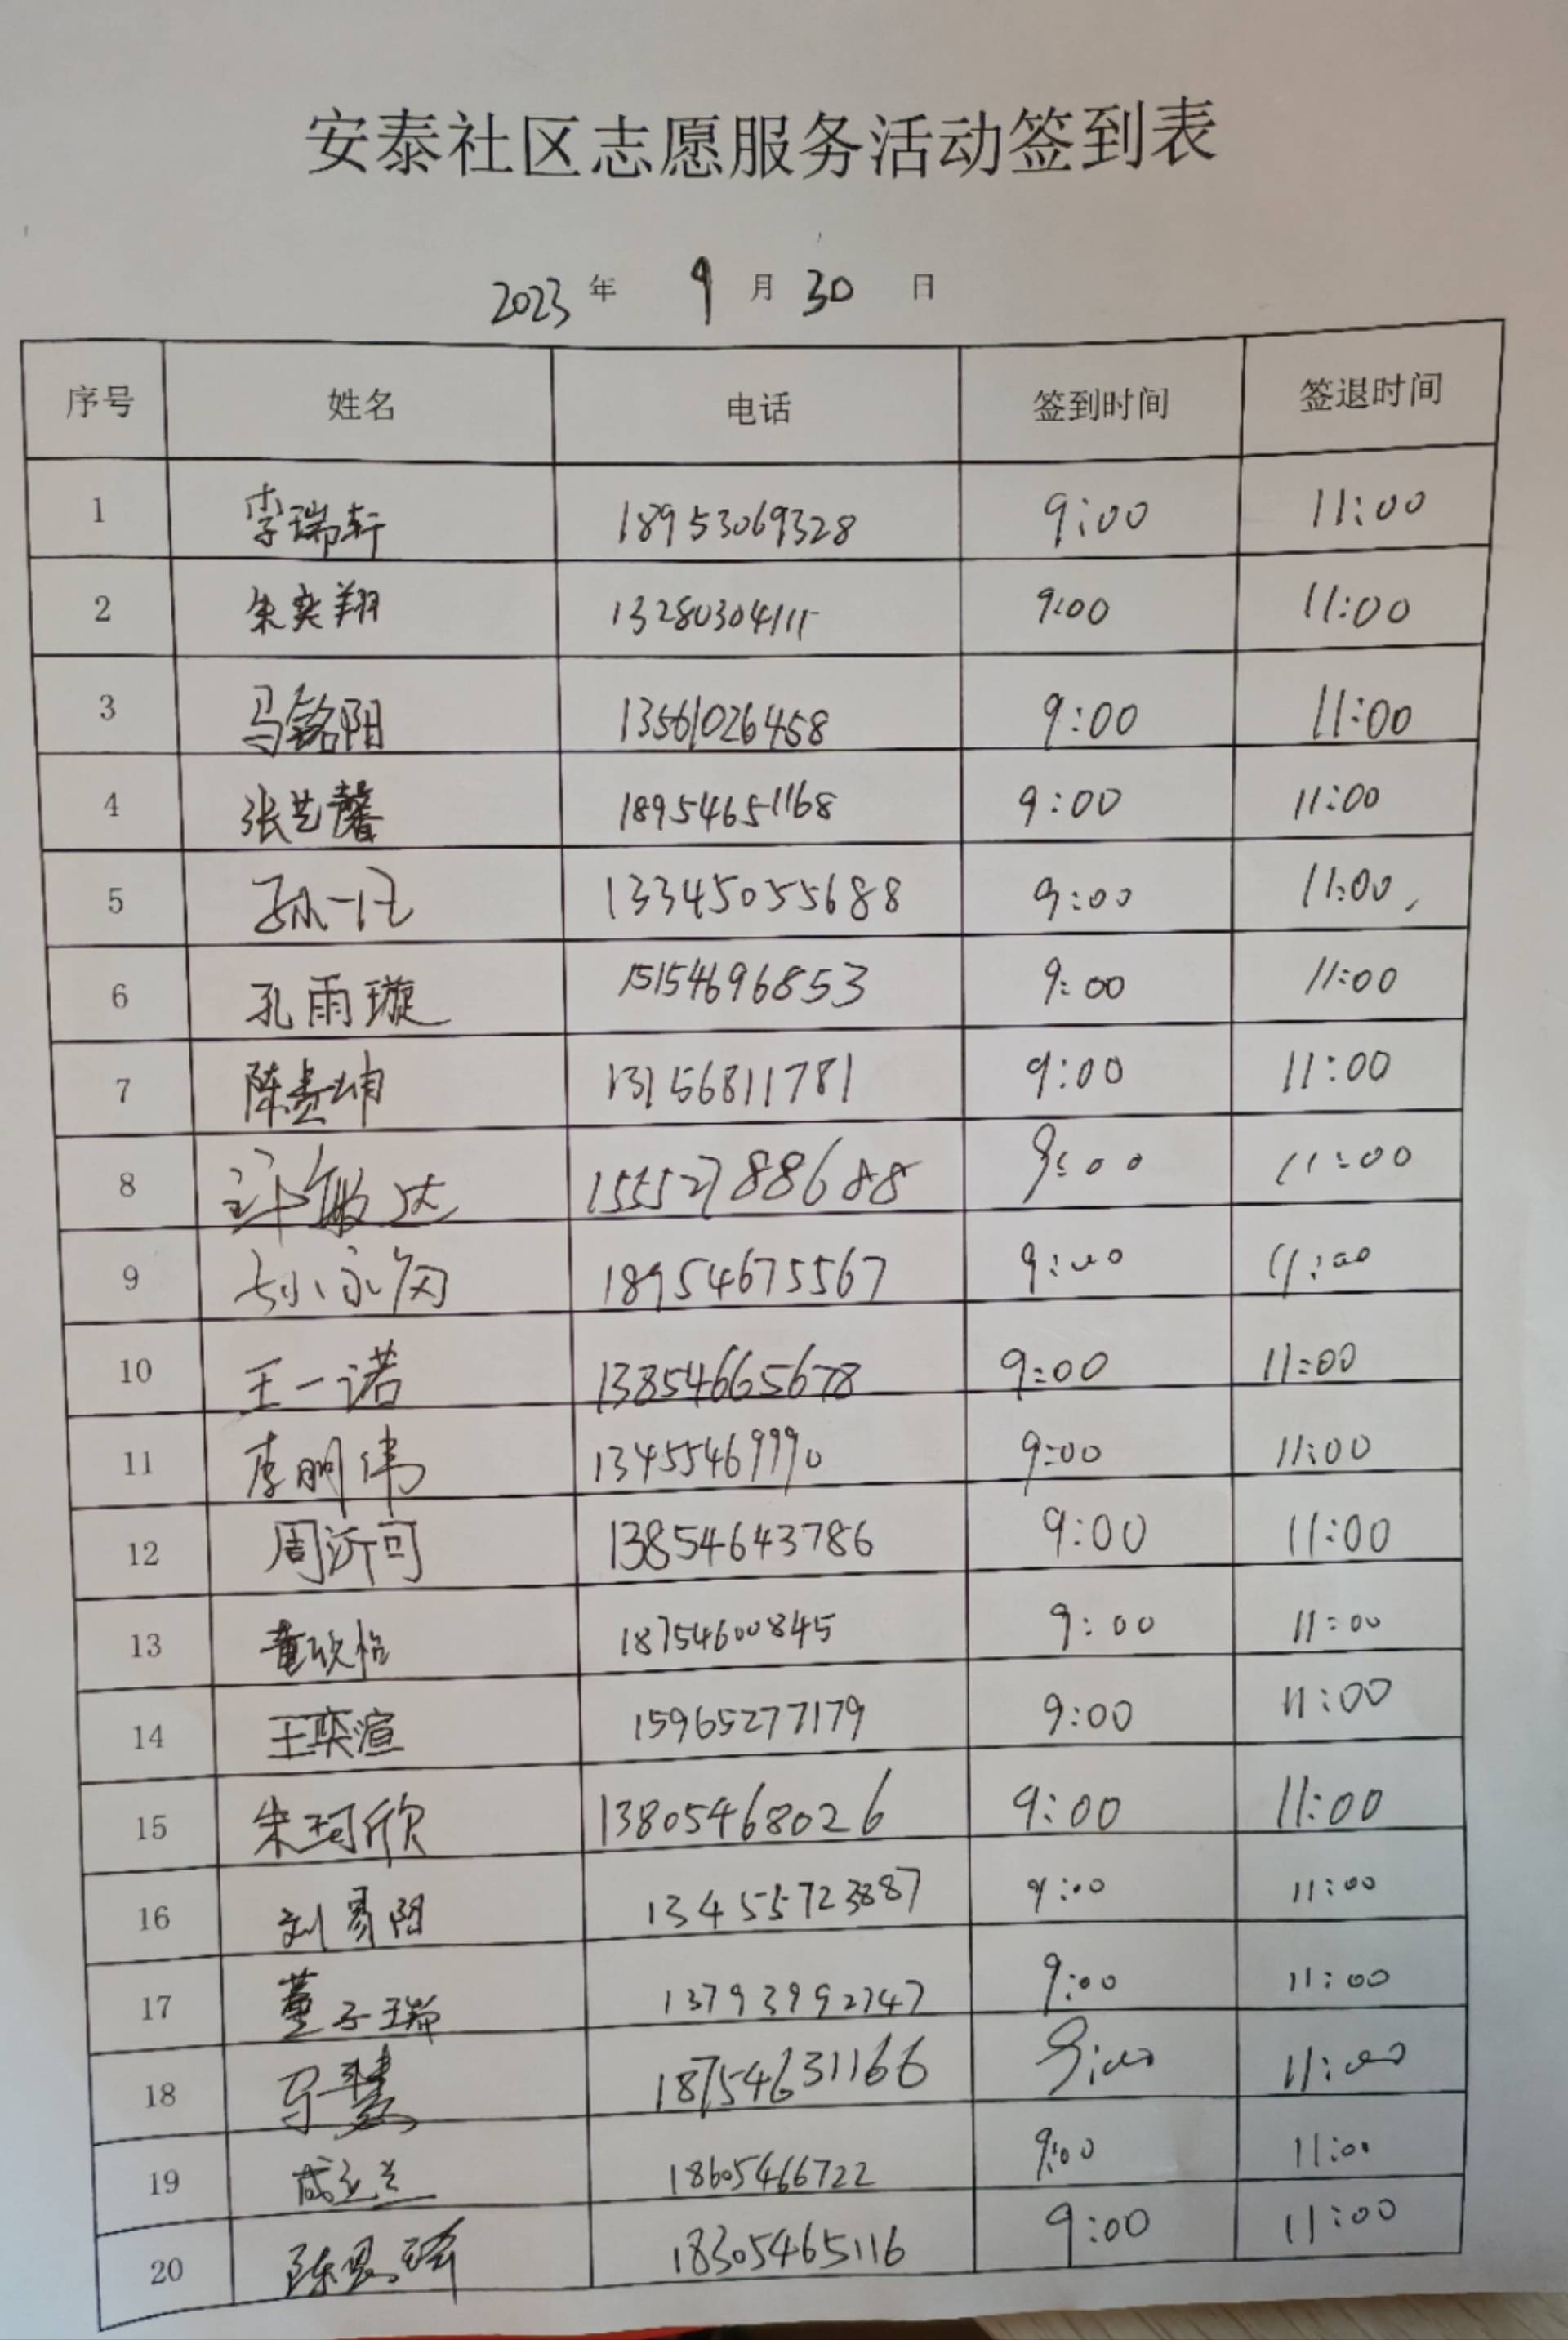 安泰社区志愿服务活动签到表
2023 年 9 月 30 日
序号 姓名 电话 签到时间 签退时间
1 李瑞轩 18953069328 9:00 11:00
2 朱奕翔 13280304111 9:00 11:00
3 马铭阳 13561026458 9:00 11:00
4 张艺馨 18954651168 9:00 11:00
5 孙一 13345055688 9:00 11:00
6 孔雨璇 15154696853 9:00 11:00
7 陈 13156811781 9:00 11:00
8 15552788688 9:00 11:00
9 18954675567 9:00 11:00
10 王一诺 13854665678 9:00 11:00
11 李明伟 13455469990 9:00 11:00
12 周沂可 13854643786 9:00 11:00
13 董欣怡 18754600845 9:00 11:00
14 王奕渲 15965277179 9:00 11:00
15 朱珂欣 13805468026 9:00 11:00
16 刘 阳 13455723887 9:00 11:00
17 董子瑞 13793992747 9:00 11:00
18 马慧 18754631166 9:00 11:00
19 18605466722 9:00 11:00
20 陈 18305465116 9:00 11:00